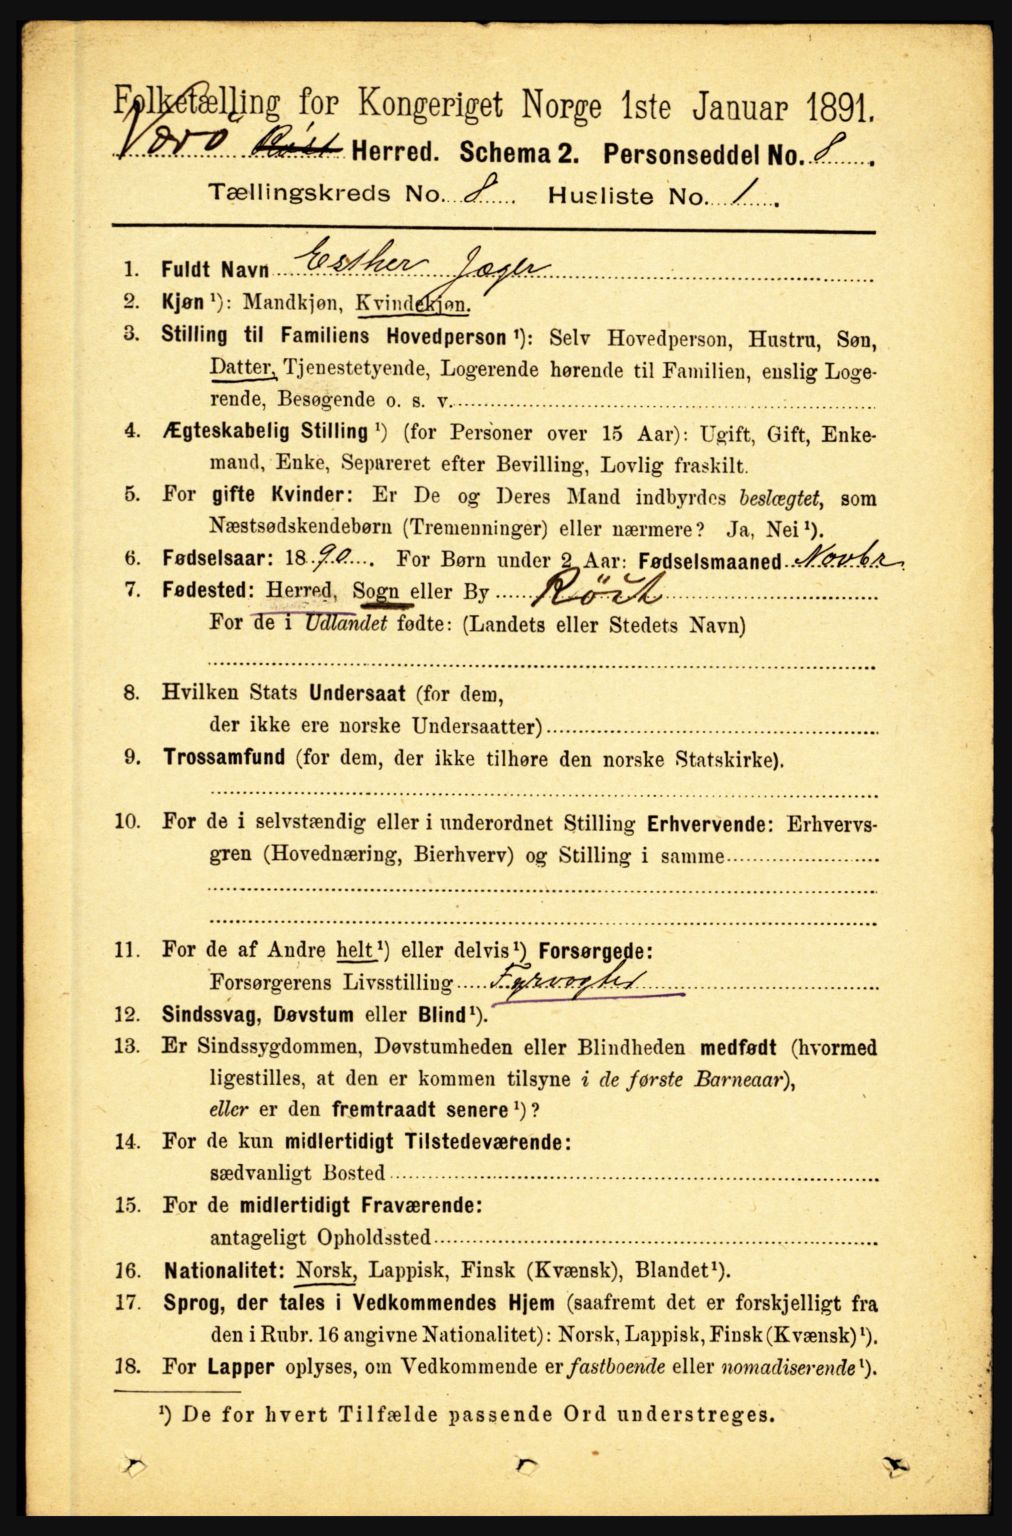 Folketælling for Kongeriget Norge 1ste Januar 1891.
Værö Röst Herred. Schema 2. Personseddel No. 8.
Tællingskreds No. 8. Husliste No. 1.
1. Fuldt Navn Esther Jæger
2. Kjøn ¹): Mandkjøn, Kvindekjøn.
3. Stilling til Familiens Hovedperson ¹): Selv Hovedperson, Hustru, Søn,
Datter, Tjenestetyende, Logerende hørende til Familien, enslig Loge-
rende, Besøgende o. s. v.
4. Ægteskabelig Stilling ¹) (for Personer over 15 Aar): Ugift, Gift, Enke-
mand, Enke, Separeret efter Bevilling, Lovlig fraskilt.
5. For gifte Kvinder: Er De og Deres Mand indbyrdes beslægtet, som
Næstsødskendebørn (Tremenninger) eller nærmere? Ja, Nei ¹).
6. Fødselsaar: 1890. For Børn under 2 Aar: Fødselsmaaned Novbr.
7. Fødested: Herred, Sogn eller By Röst
For de i Udlandet fødte: (Landets eller Stedets Navn)
8. Hvilken Stats Undersaat (for dem,
der ikke ere norske Undersaatter)
9. Trossamfund (for dem, der ikke tilhøre den norske Statskirke).
10. For de i selvstændig eller i underordnet Stilling Erhvervende: Erhvervs-
gren (Hovednæring, Bierhverv) og Stilling i samme
11. For de af Andre helt ¹) eller delvis ¹) Forsørgede:
Forsørgerens Livsstilling Fyrvogter
12. Sindssvag, Døvstum eller Blind ¹).
13. Er Sindssygdommen, Døvstumheden eller Blindheden medfødt (hvormed
ligestilles, at den er kommen tilsyne i de første Barneaar),
eller er den fremtraadt senere ¹)?
14. For de kun midlertidigt Tilstedeværende:
sædvanligt Bosted
15. For de midlertidigt Fraværende:
antageligt Opholdssted
16. Nationalitet: Norsk, Lappisk, Finsk (Kvænsk), Blandet ¹).
17. Sprog, der tales i Vedkommendes Hjem (saafremt det er forskjelligt fra
den i Rubr. 16 angivne Nationalitet): Norsk, Lappisk, Finsk (Kvænsk) ¹).
18. For Lapper oplyses, om Vedkommende er fastboende eller nomadiserende ¹).
¹) De for hvert Tilfælde passende Ord understreges.